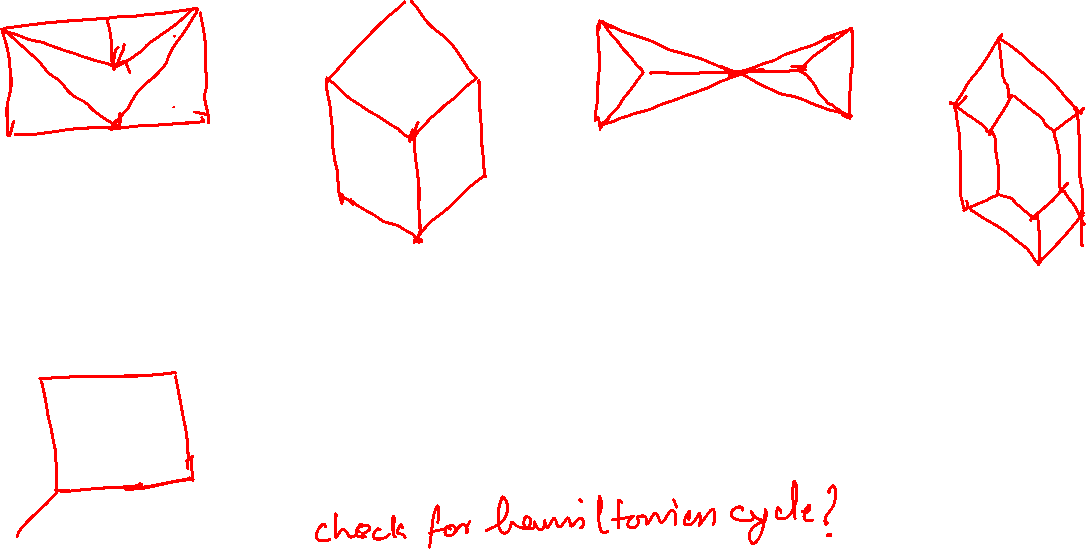 check for hamiltonian cycle?